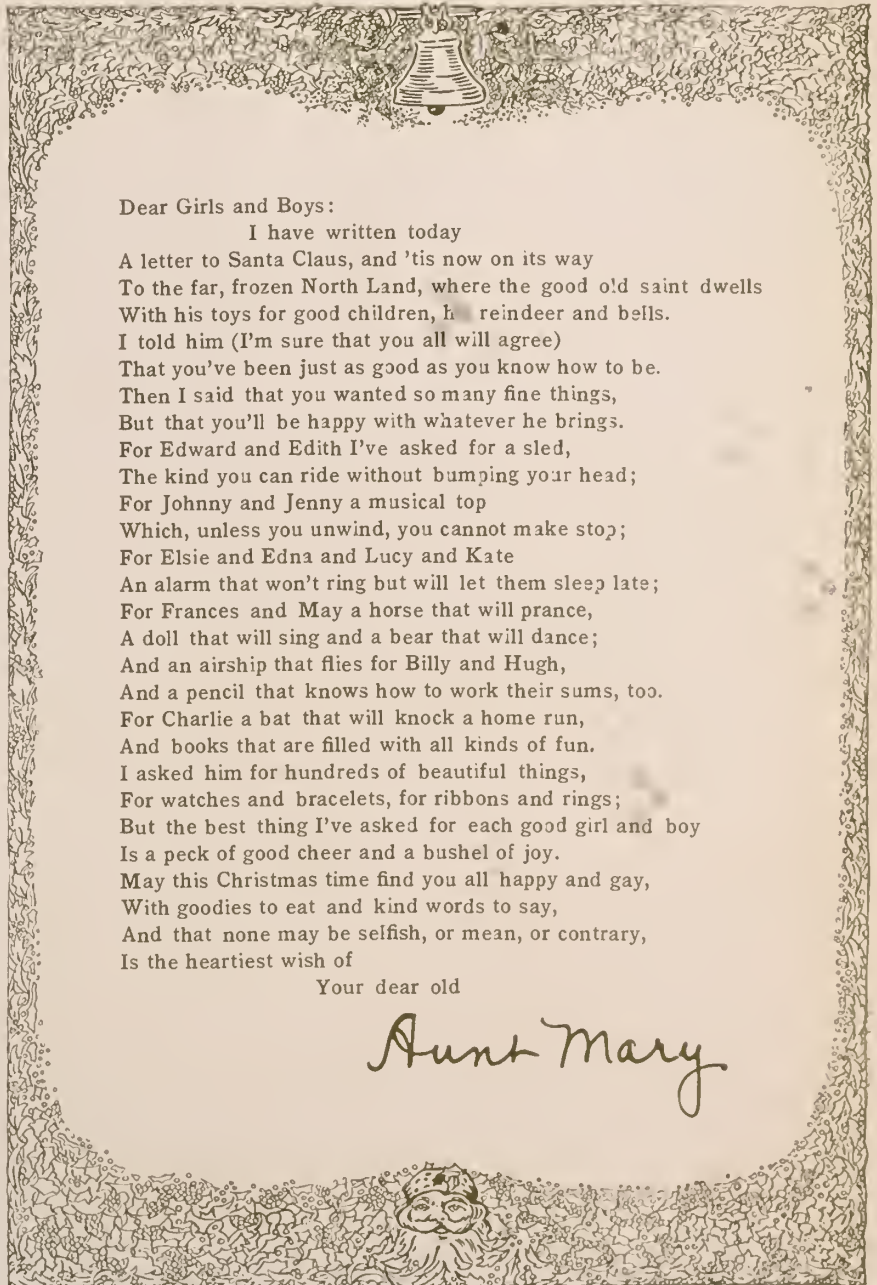 Dear Girls and Boys:
I have written today
A letter to Santa Claus, and 'tis now on its way
To the far, frozen North Land, where the good old saint dwells
With his toys for good children, reindeer and bells.
I told him (I'm sure that you all will agree)
That you've been just as good as you know how to be.
Then I said that you wanted so many fine things,
But that you'll be happy with whatever he brings.
For Edward and Edith I've asked for a sled,
The kind you can ride without bumping your head;
For Johnny and Jenny a musical top
Which, unless you unwind, you cannot make stop;
For Elsie and Edna and Lucy and Kate
An alarm that won't ring but will let them sleep late;
For Frances and May a horse that will prance,
A doll that will sing and a bear that will dance;
And an airship that flies for Billy and Hugh,
And a pencil that knows how to work their sums, too.
For Charlie a bat that will knock a home run,
And books that are filled with all kinds of fun.
I asked him for hundreds of beautiful things,
For watches and bracelets, for ribbons and rings;
But the best thing I've asked for each good girl and boy
Is a peck of good cheer and a bushel of joy.
May this Christmas time find you all happy and gay,
With goodies to eat and kind words to say,
And that none may be selfish, or mean, or contrary,
Is the heartiest wish of
Your dear old
Aunt Mary